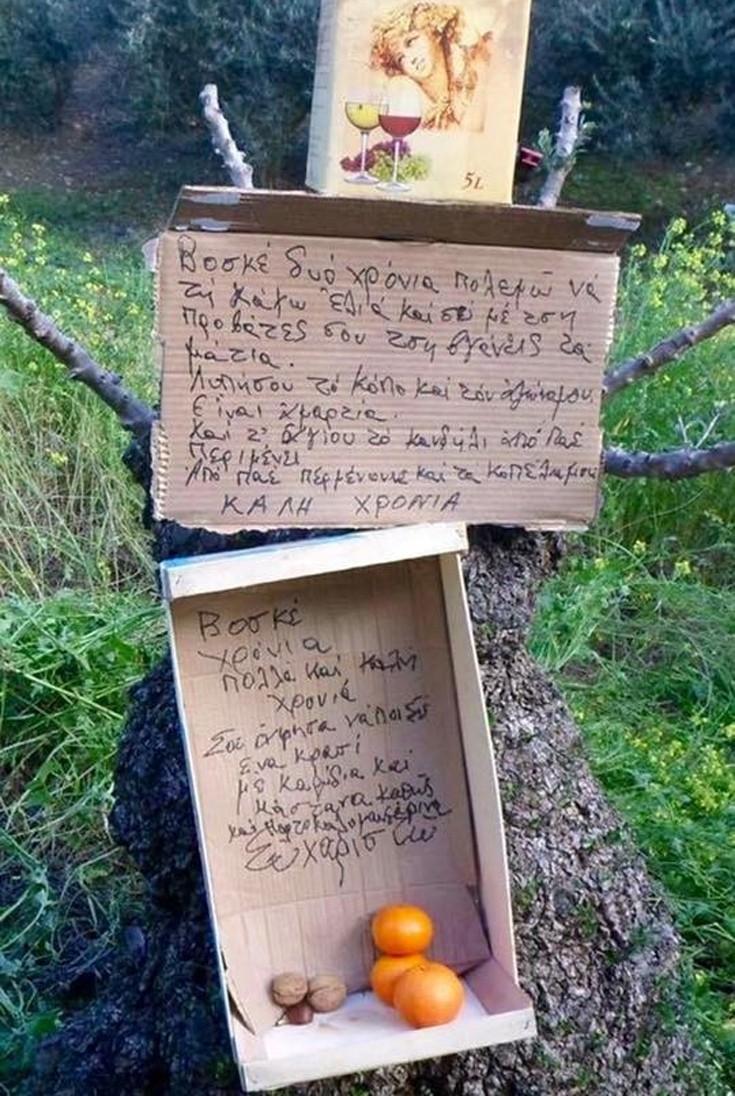 5L
Βοσκέ δυό χρόνια πολεμώ νά
τή κάμω Ελιά και σύ μέ τση
προβάτες σου τση βγάνεις τά
μάτια.
Λυπήσου τό κόπο και τόν αγώναμου.
Είναι αμαρτία.
Και τ' άγίου τό καντήλι από Παέ
περιμένει
Από Παέ περμένουνε και τα κοπέλιαμου
ΚΑΛΗ ΧΡΟΝΙΑ
Βοσκέ
χρόνια
πολλά και καλή
χρονιά
Σου άφησα νά πιείς
ένα κρασί
μέ καρύδια και
κάστανα καθώς
και πορτοκαλομανδέρινα
Ευχαριστώ